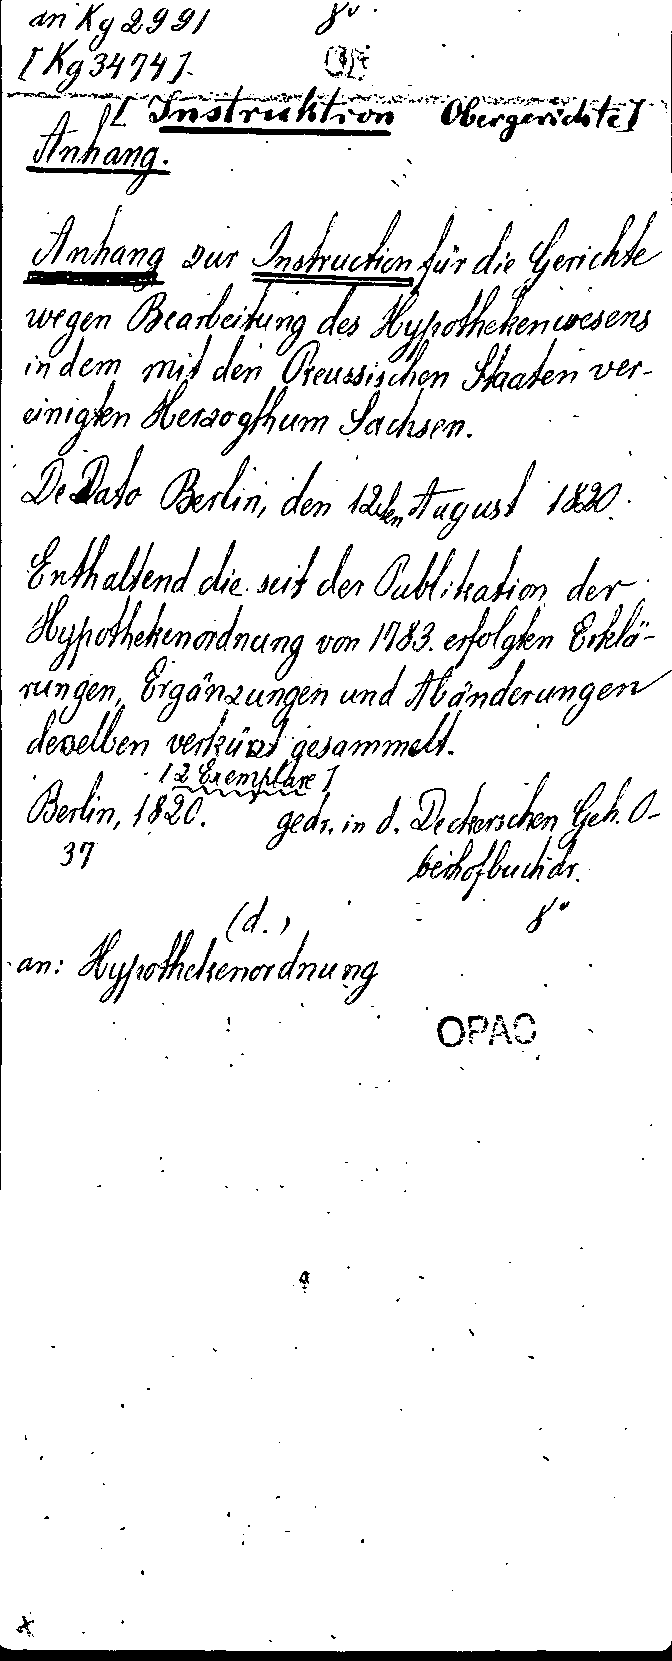 an Kg 2991 8°
[Kg 3474].
[Instruktion Obergerichte]
Anhang.
Anhang zur Instruction für die Gerichte
wegen Bearbeitung des Hypothekenwesens
in dem mit den Preussischen Staaten ver-
einigten Herzogthum Sachsen.
De Dato Berlin, den 12ten August 1820.
Enthaltend die seit der Publikation der
Hypothekenordnung von 1783. erfolgten Erklä-
rungen, Ergänzungen und Abänderungen
deselben verkürzt gesammelt.
[2 Exemplare]
Berlin, 1820. gedr. in d. Deckerschen Geh. O-
berhofbuchdr.
37
(d.) 8°
an: Hypothekenordnung
OPAC